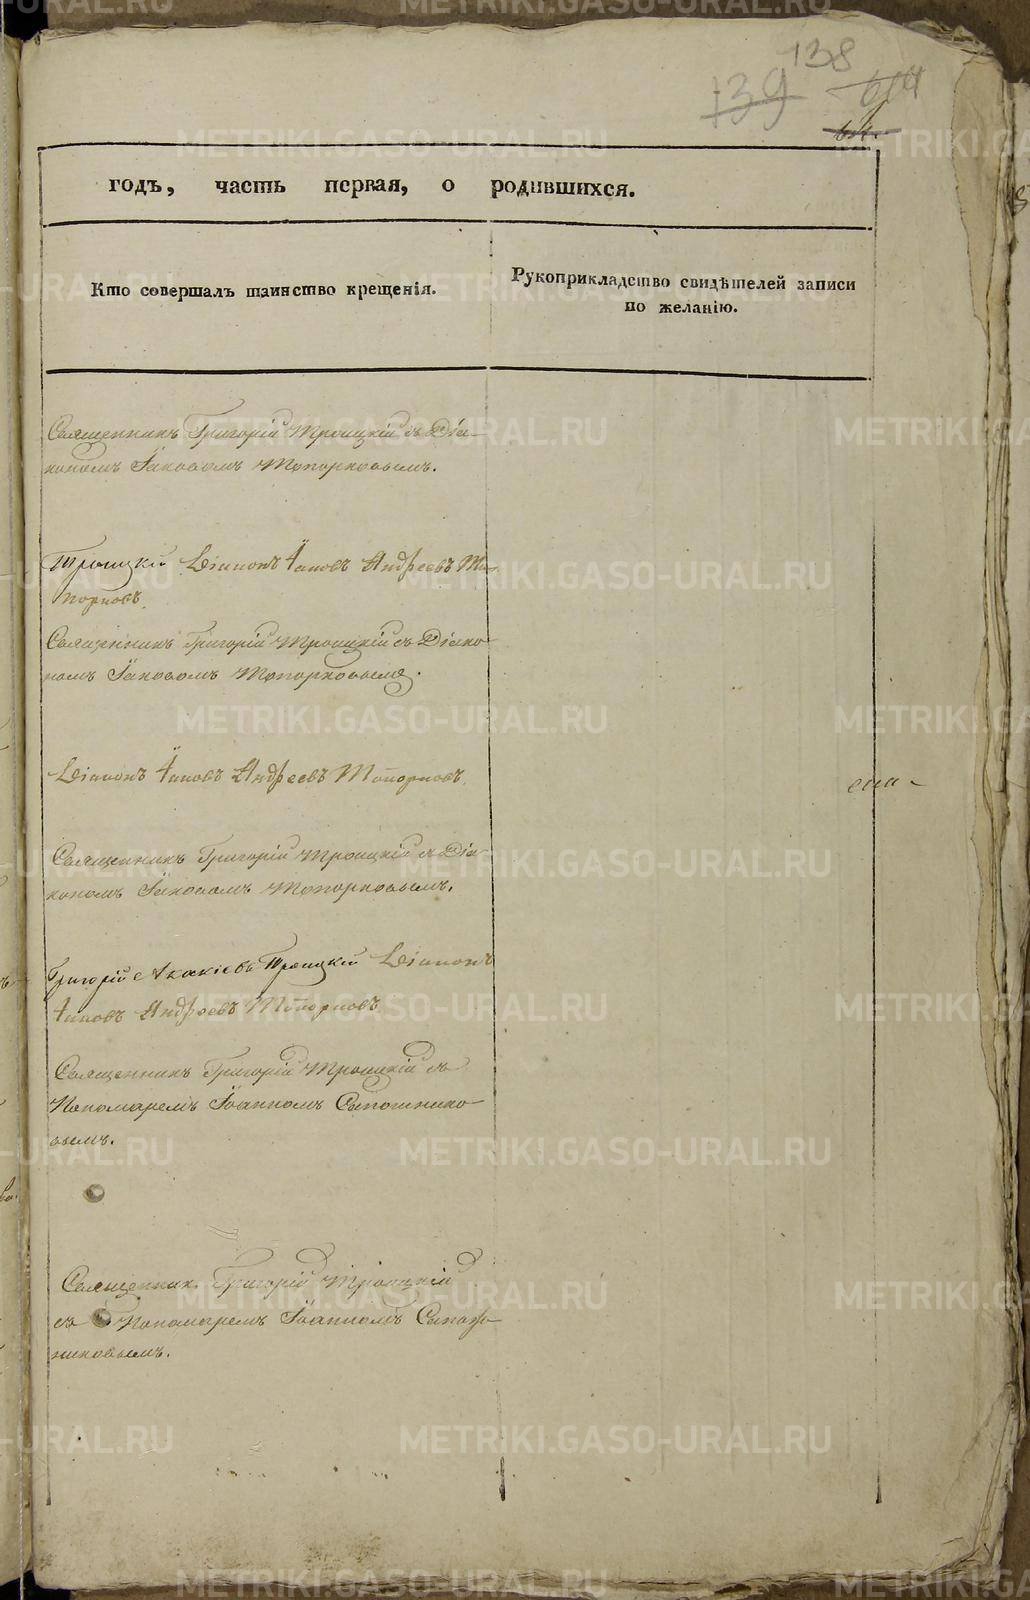 138
139
614
годъ, часть первая, о родившихся.
Кто совершалъ таинство крещенія.
Рукоприкладство свидѣтелей записи
по желанію.
Священникъ Григорій Троицкій съ Діа-
кономъ Іаковомъ Топорковымъ.
Троицкій Діаконъ Іаковъ Андреевъ То-
порковъ.
Священникъ Григорій Троицкій съ Діако-
номъ Іаковомъ Топорковымъ.
Діаконъ Іаковъ Андреевъ Топорковъ.
Священникъ Григорій Троицкій съ Діа-
кономъ Іаковомъ Топорковымъ.
Григорій Акакіевъ Троицкій Діаконъ
Іаковъ Андреевъ Топорковъ
Священникъ Григорій Троицкій съ
Пономаремъ Іоанномъ Сапожнико-
вымъ.
Священник. Григорій Троицкій
съ Пономаремъ Іоанномъ Сапож-
никовымъ.
METRIKI.GASO-URAL.RU